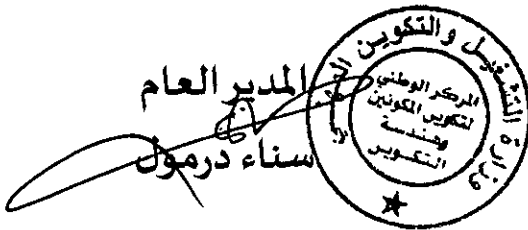 المدير العام
سناء درمول
وزارة التشغيل والتكوين المهني
المركز الوطني
لتكوين المكونين
وهندسة
التكوين